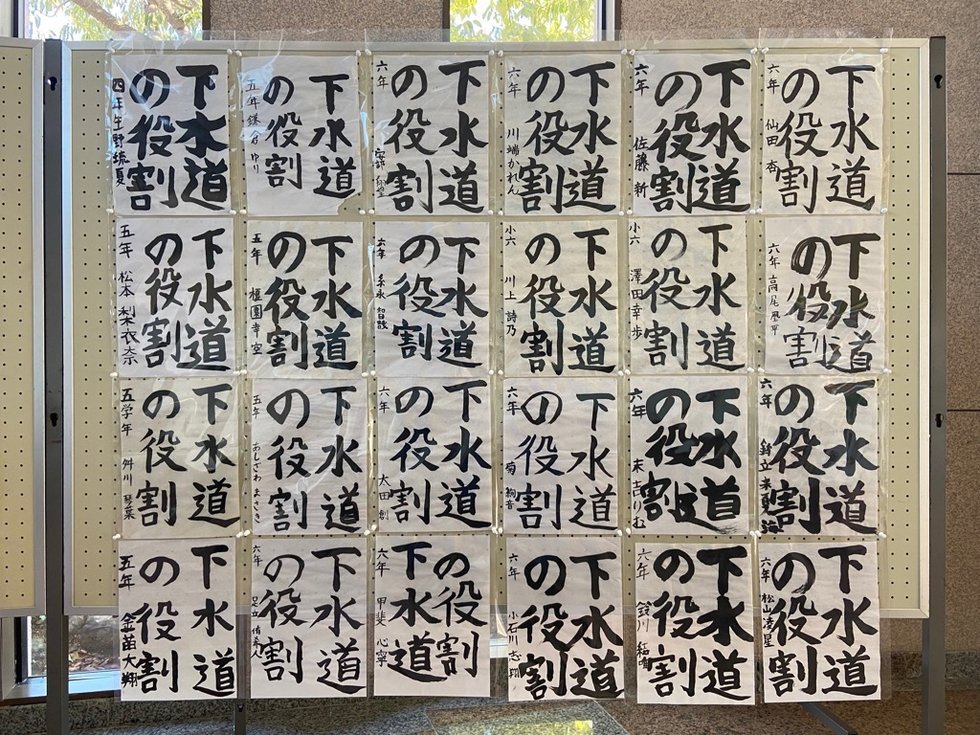 下水道
の役割
四年生野琉夏
下水道
の役割
五年 鎌倉ゆり
下水道
の役割
六年
下水道
の役割
六年 川端かれん
下水道
の役割
六年 佐藤新
下水道
の役割
六年 仙田杏
下水道
の役割
五年 松本梨衣奈
下水道
の役割
五年 幸空
下水道
の役割
六年 糸永
下水道
の役割
小六 川上詩乃
下水道
の役割
小六 澤田幸歩
下水道
の役割
六年 高尾
下水道
の役割
五学年 舛川琴葉
下水道
の役割
五年 おしざわまさき
下水道
の役割
六年 太田創
下水道
の役割
六年 菊絢音
下水道
の役割
六年 末吉りむ
下水道
の役割
六年 足立来夏
下水道
の役割
五年 金苗大翔
下水道
の役割
六年 足立
の役割
下水道
六年 甲斐心寧
下水道
の役割
六年 小石川志翔
下水道
の役割
六年 鈴川結唯
下水道
の役割
六年 松山湊星